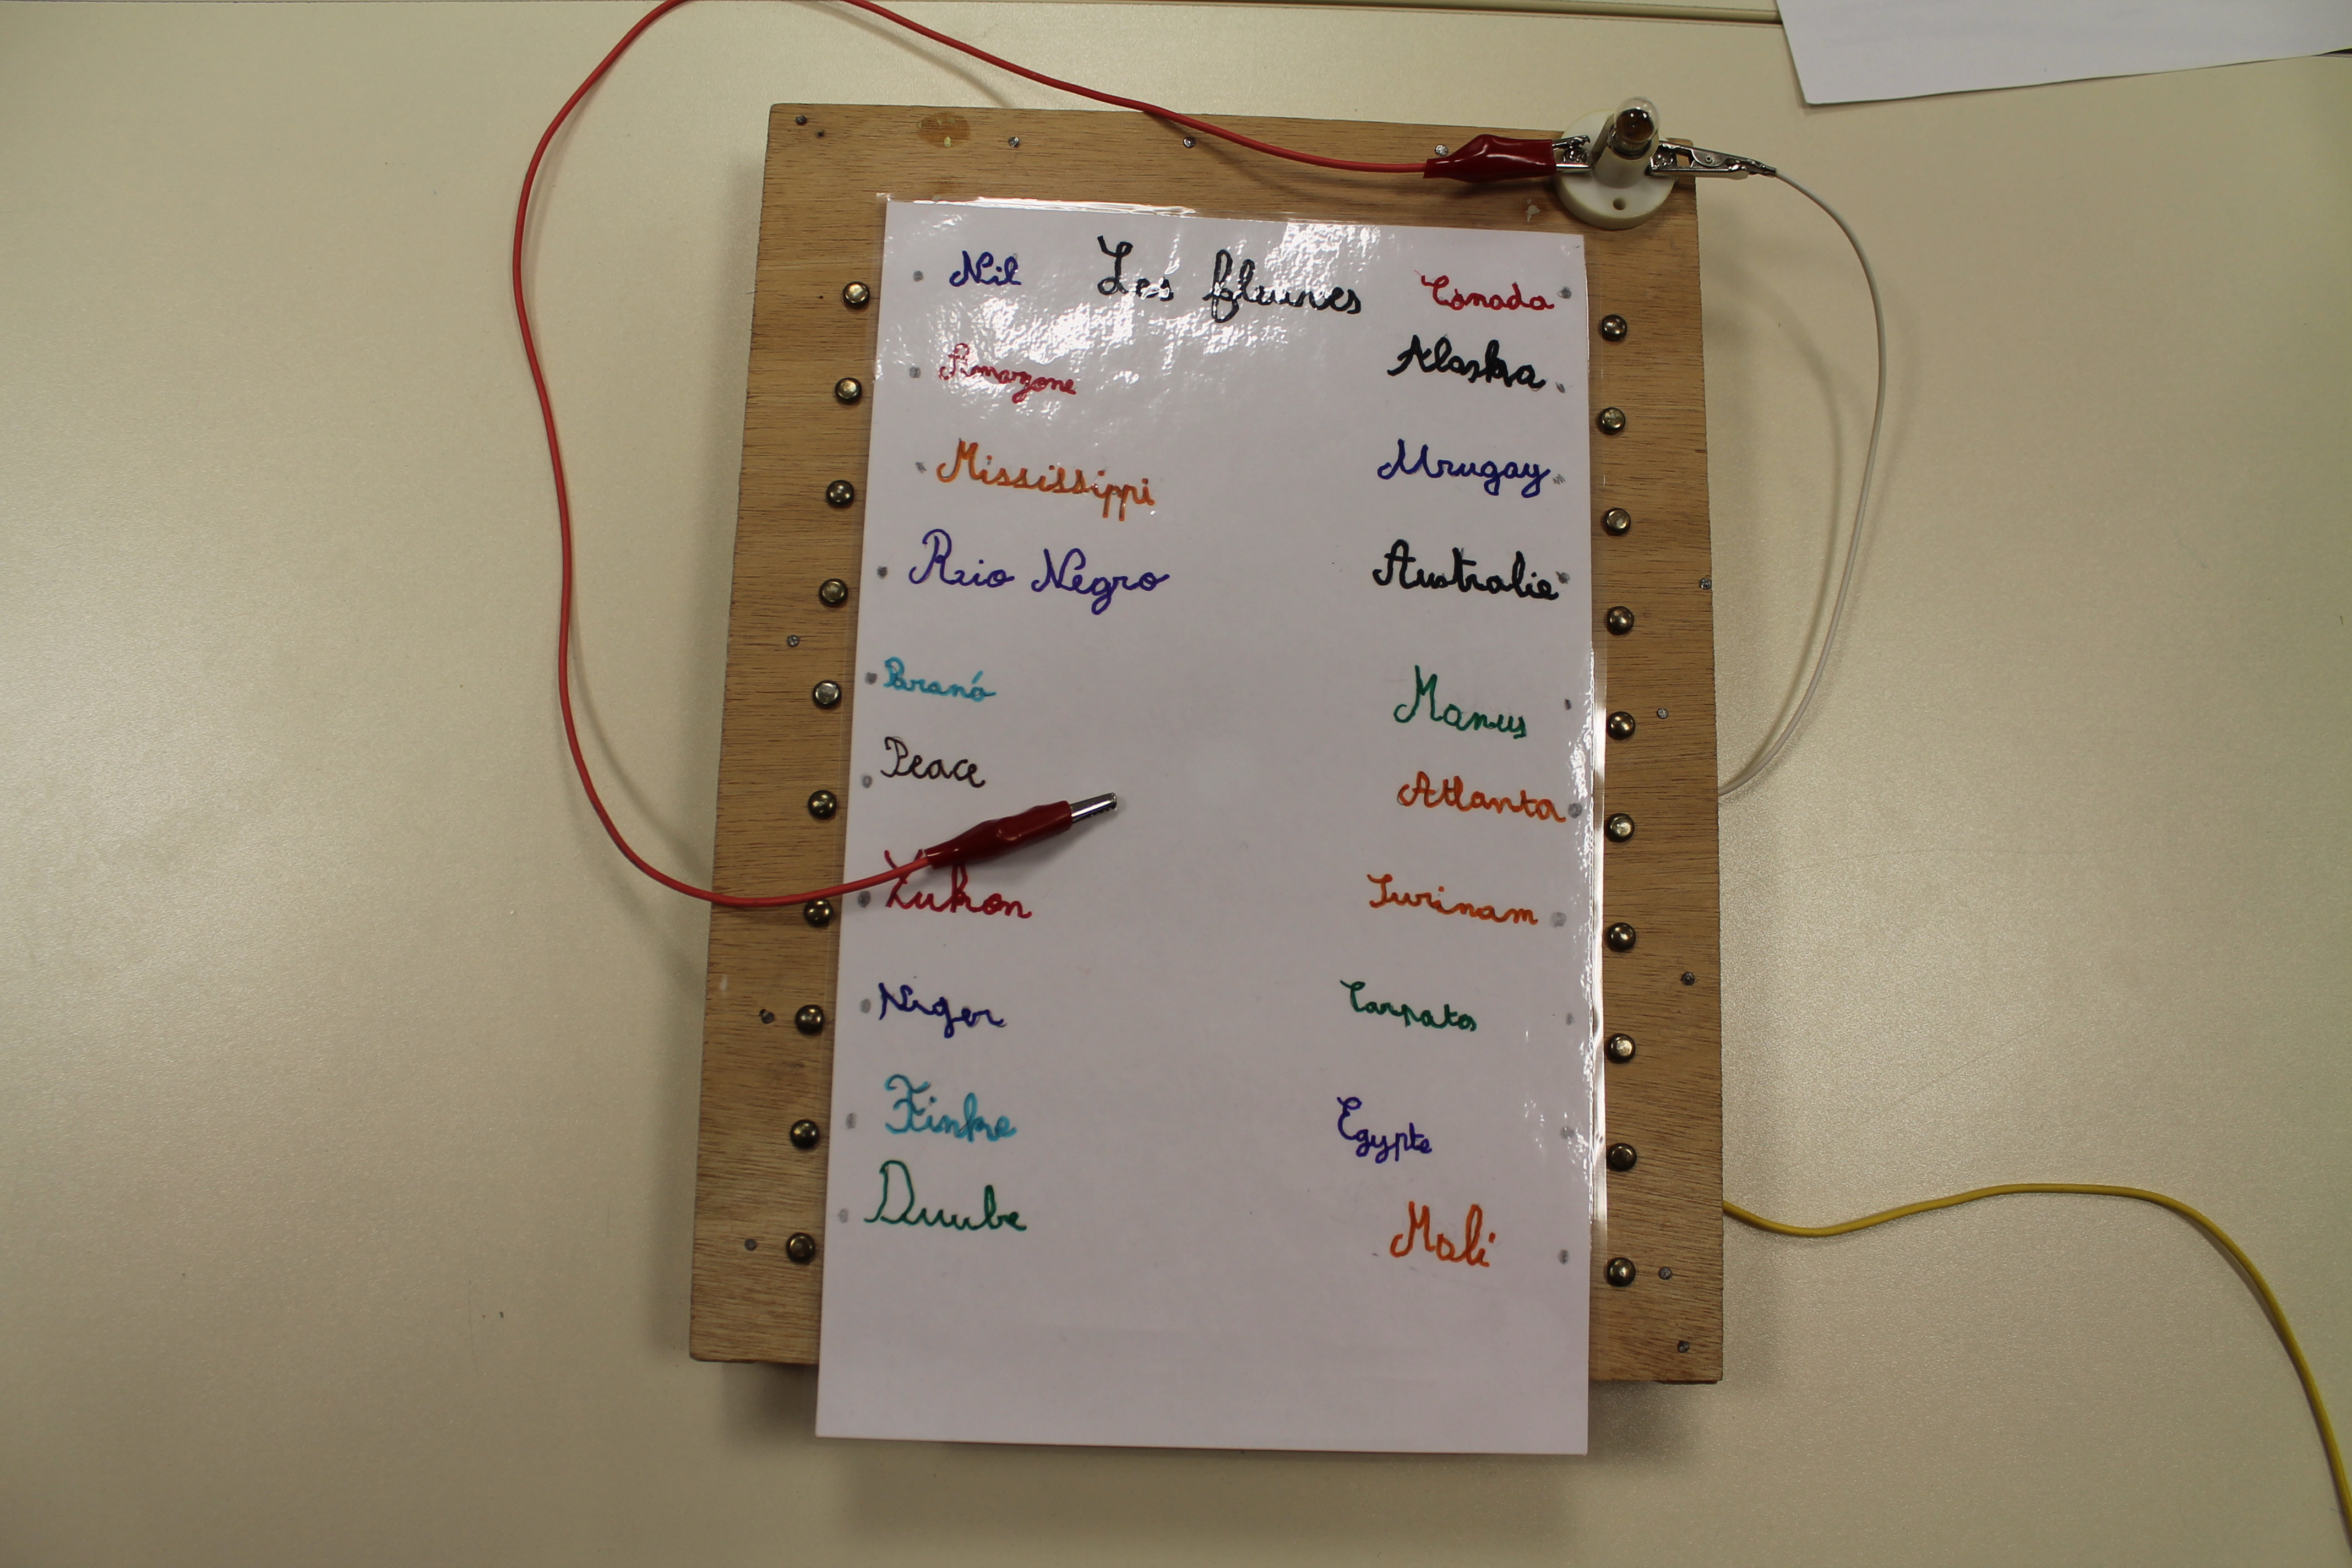 Les fleuves
Nil Canada
Amazone Alaska
Mississippi Urugay
Rio Negro Australie
Paraná Manus
Peace Atlanta
Yukon Surinam
Niger Carpatos
Finke Egypte
Duube Mali